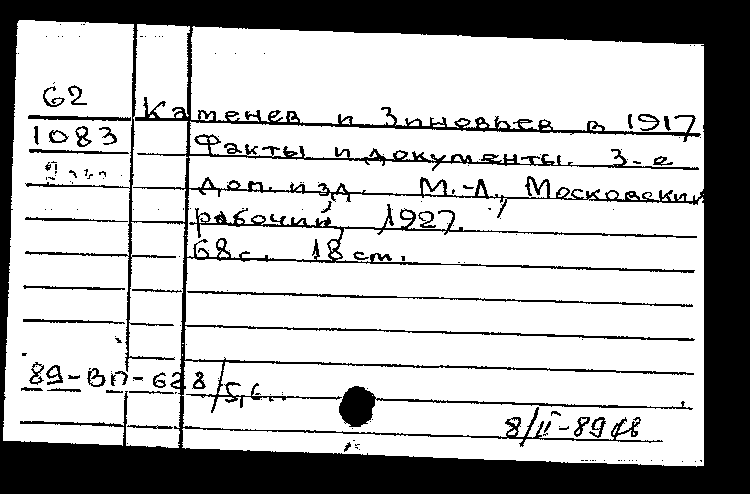 62
Каменев и Зиновьев в 1917
1083
Факты и документы. 3-е
доп. изд. М.-Л., Московский
рабочий, 1927.
68 с. 18 см.
89-ВП-628/
8/II-89